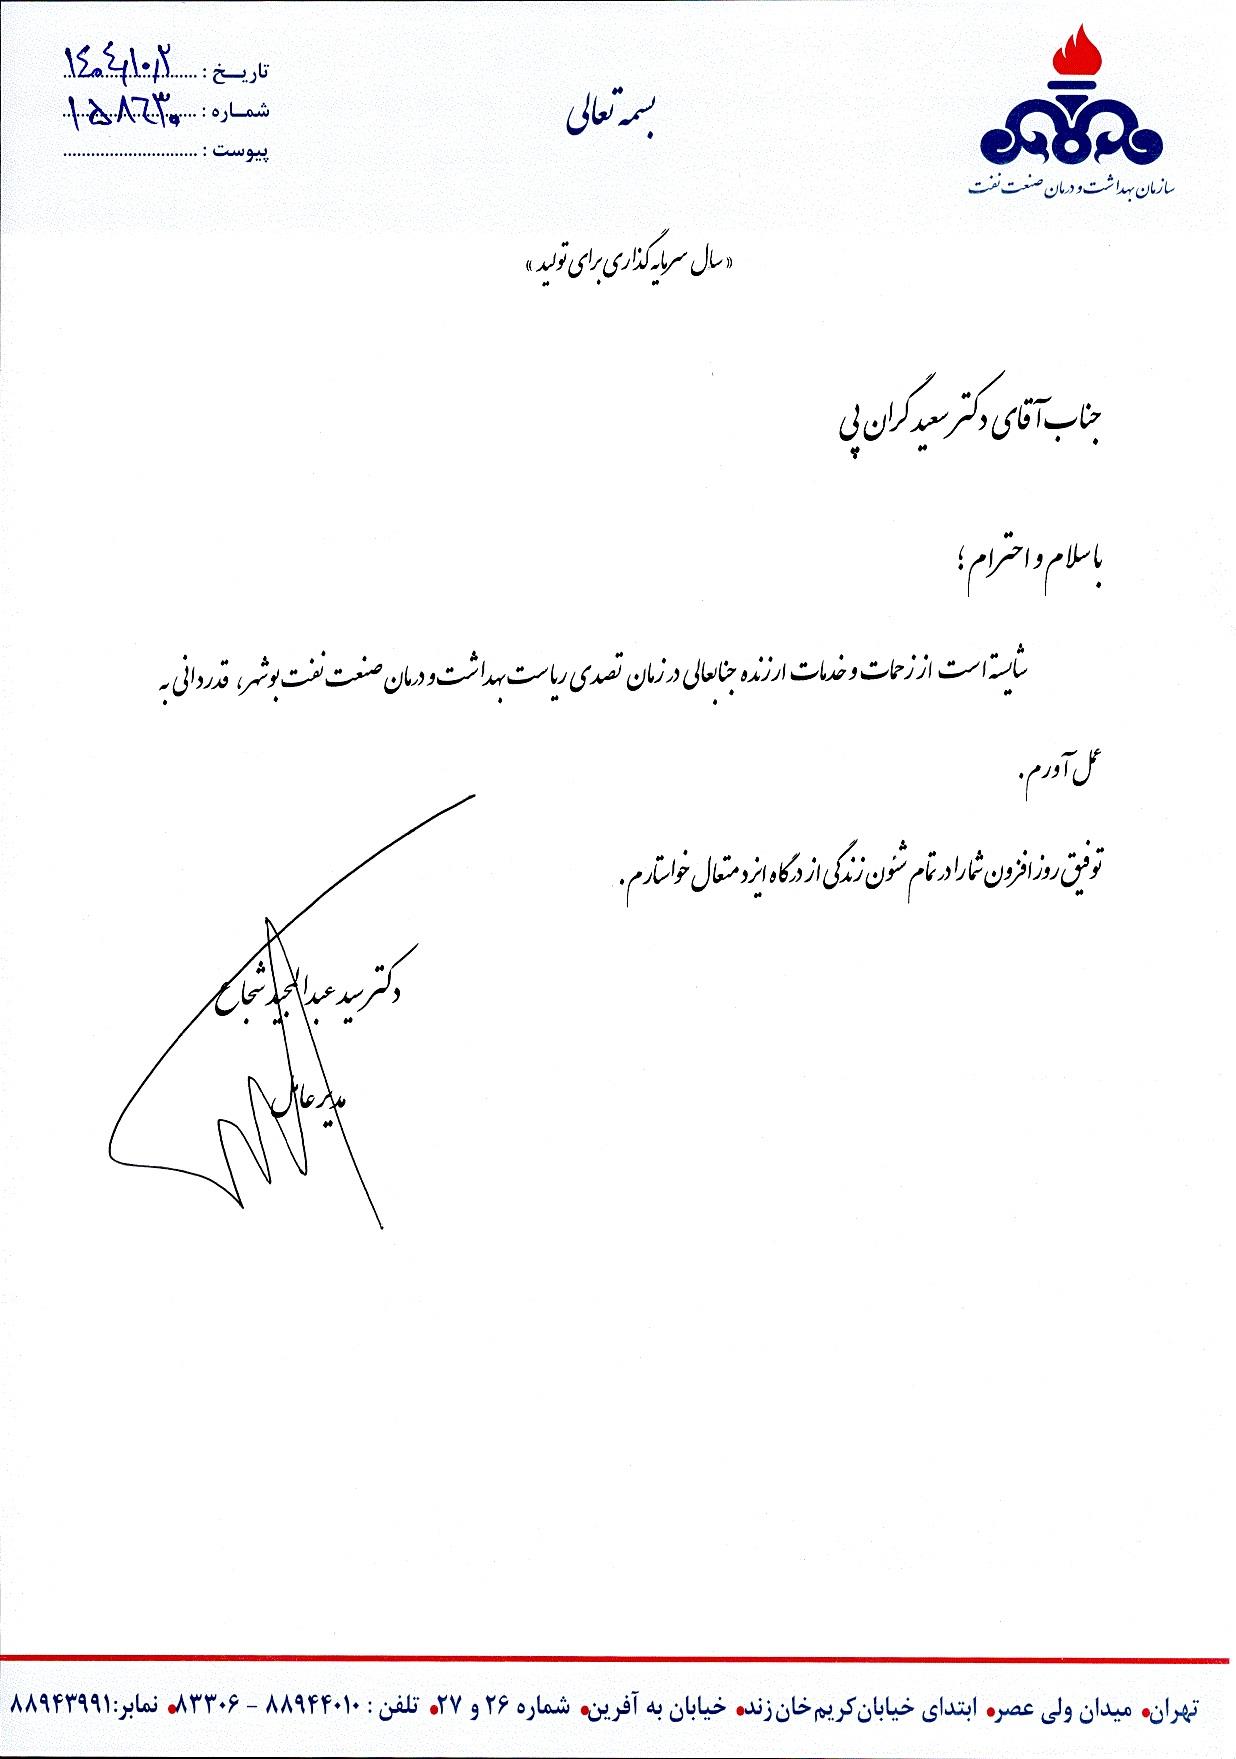 بسمه تعالی
سازمان بهداشت و درمان صنعت نفت
تاریخ : ۱۴۰۴/۱۰/۲
شماره : ۱۵۸۶۳۰
پیوست :
« سال سرمایه گذاری برای تولید »
جناب آقای دکتر سعید گران پی
با سلام و احترام ؛
شایسته است از زحمات و خدمات ارزنده جنابعالی در زمان تصدی ریاست بهداشت و درمان صنعت نفت بوشهر، قدردانی به
عمل آورم.
توفیق روز افزون شما را در تمام شئون زندگی از درگاه ایزد متعال خواستارم.
دکتر سید عبدالمجید شجاع
مدیر عامل
تهران• میدان ولی عصر• ابتدای خیابان کریم خان زند• خیابان به آفرین• شماره ۲۶ و ۲۷• تلفن : ۸۸۹۴۴۰۱۰ - ۸۳۳۰۶• نمابر:۸۸۹۴۳۹۹۱